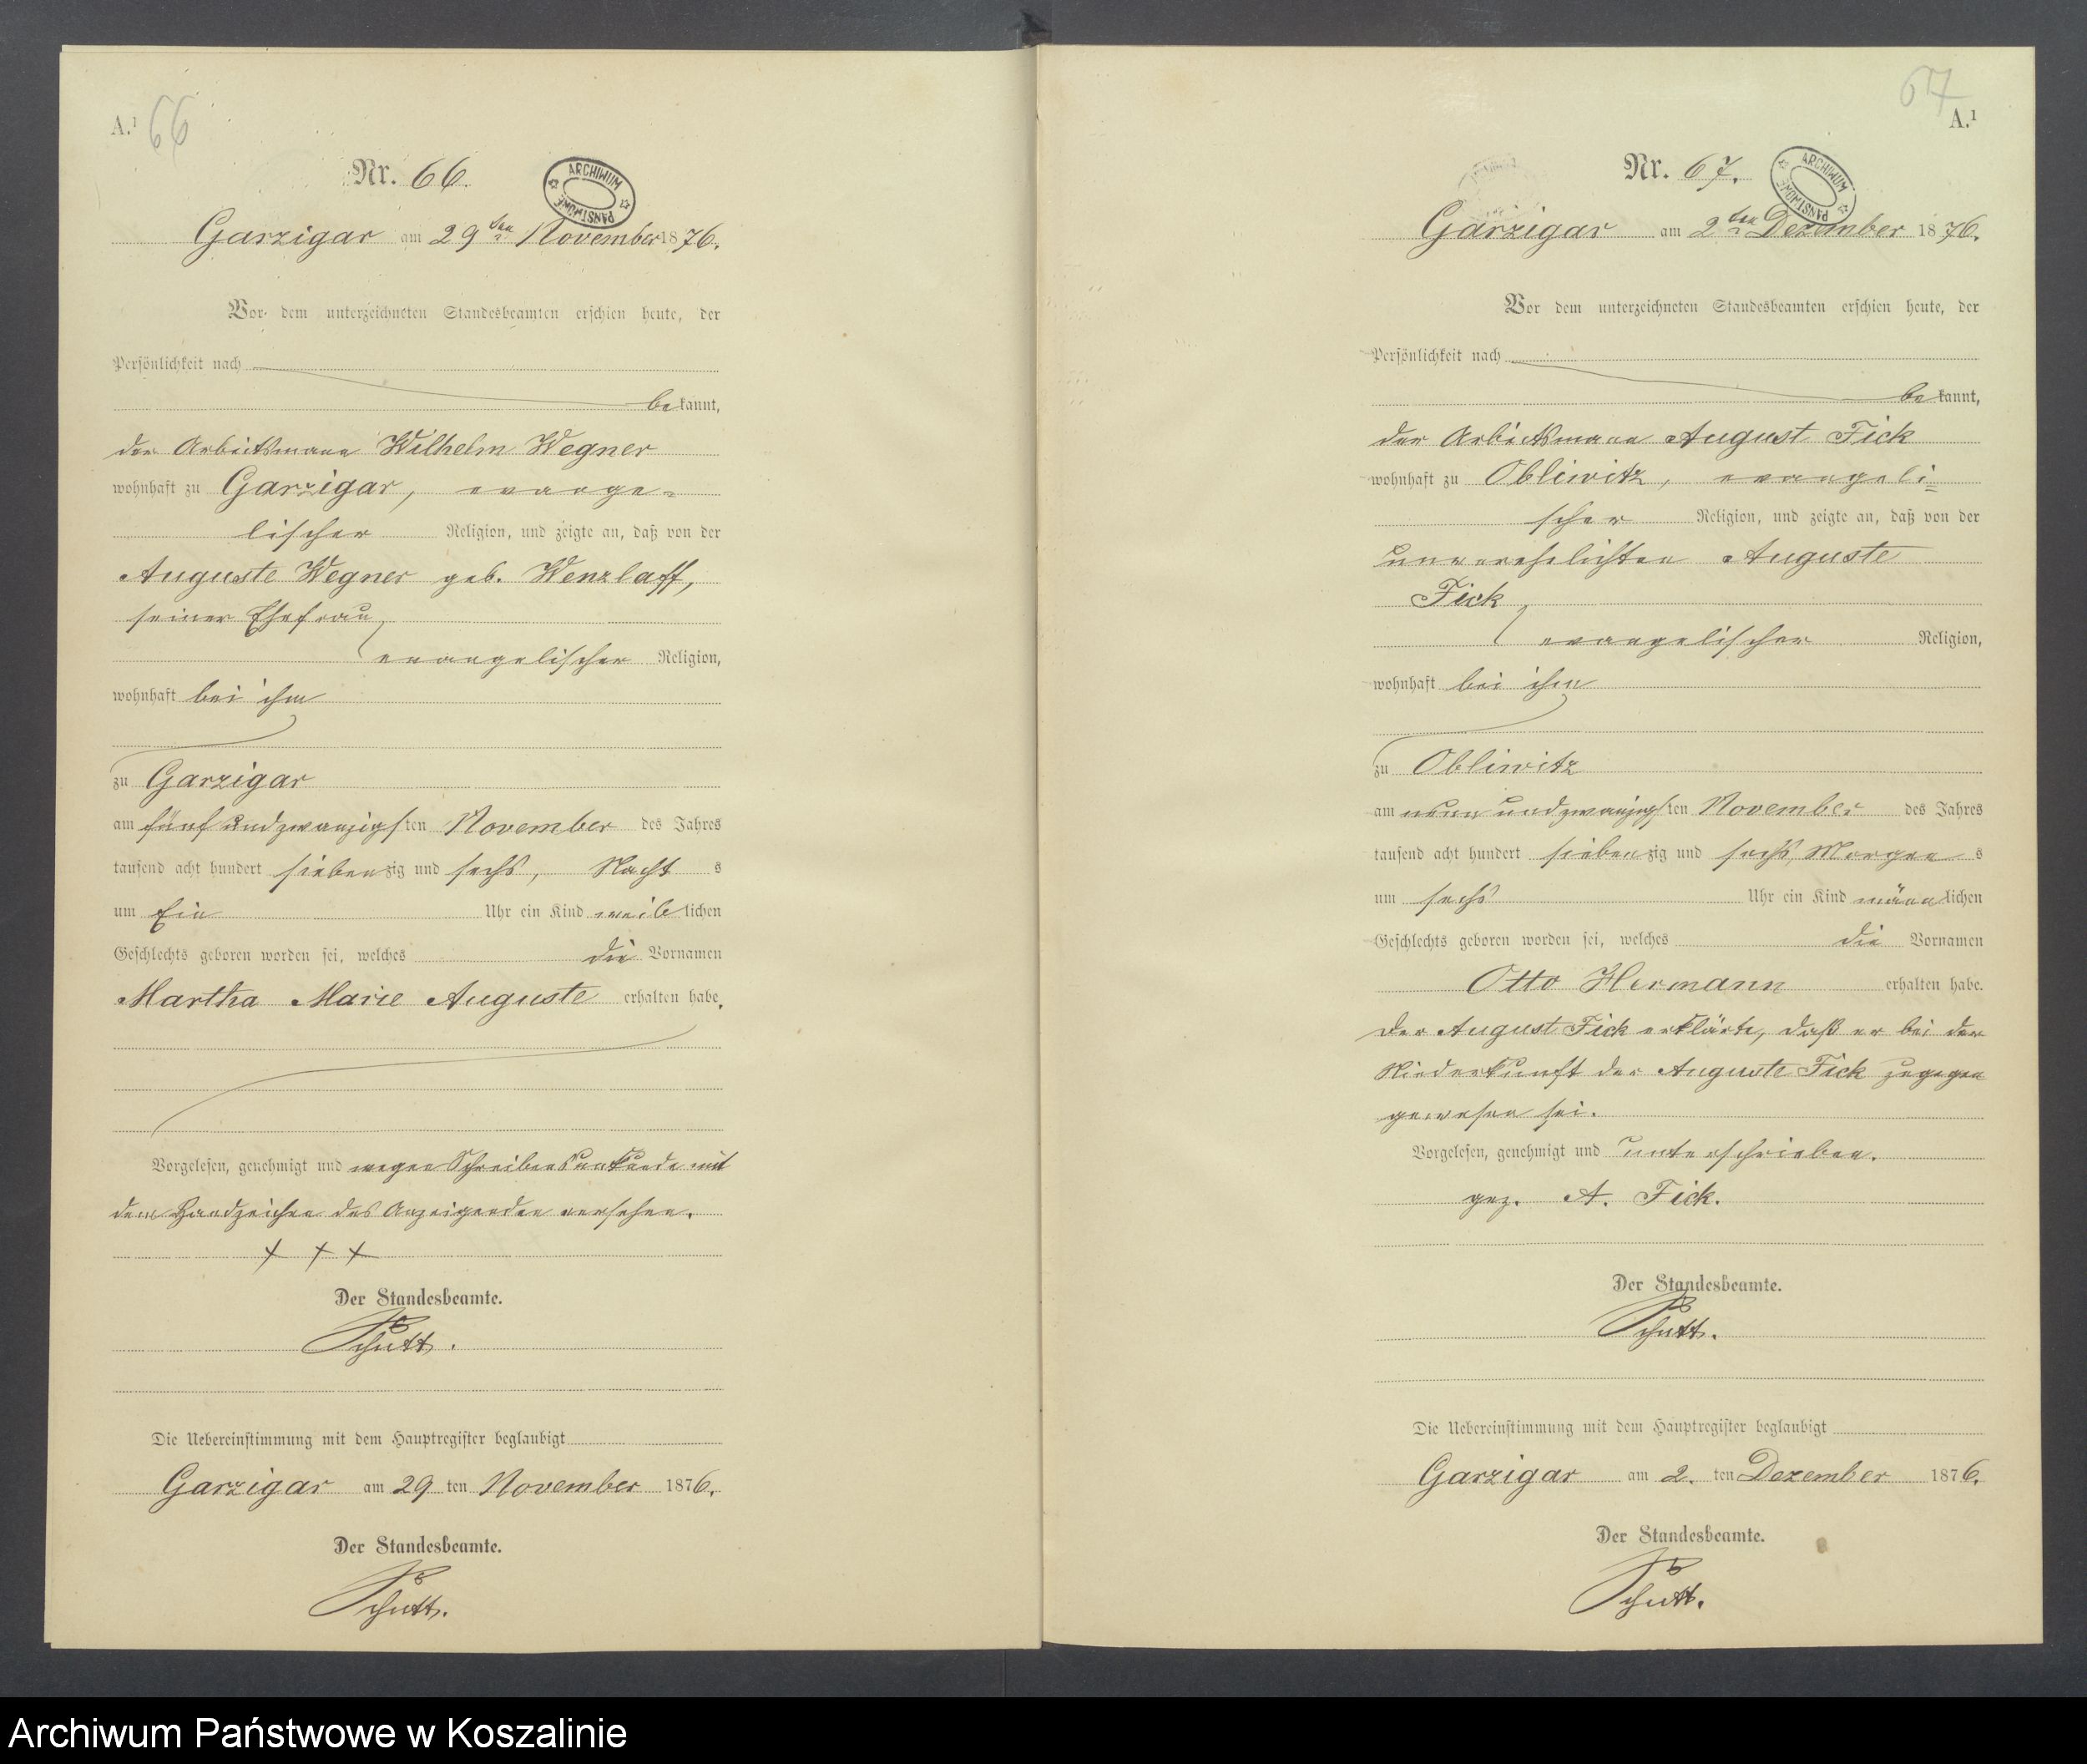 A.¹ 66
Nr. 66.
ARCHIWUM PAŃSTWOWE
Garzigar am 29ten November 1876.
Vor dem unterzeichneten Standesbeamten erschien heute, der
Persönlichkeit nach
bekannt,
der Arbeitsmann Wilhelm Wegner
wohnhaft zu Garzigar, evange=
lischer Religion, und zeigte an, daß von der
Auguste Wegner geb. Wenzlaff,
seiner Ehefrau
evangelischer Religion,
wohnhaft bei ihm
zu Garzigar
am fünf und zwanzigsten November des Jahres
tausend acht hundert siebenzig und sechs, Nachts
um Ein Uhr ein Kind weiblichen
Geschlechts geboren worden sei, welches die Vornamen
Martha Marie Auguste erhalten habe.
Vorgelesen, genehmigt und wegen Schreibensunkunde mit
dem Handzeichen des Anzeigenden versehen.
+ + +
Der Standesbeamte.
Schutt.
Die Uebereinstimmung mit dem Hauptregister beglaubigt
Garzigar am 29 ten November 1876.
Der Standesbeamte.
Schutt.
67
A.¹
Nr. 67.
ARCHIWUM PAŃSTWOWE
Garzigar am 2ten Dezember 1876.
Vor dem unterzeichneten Standesbeamten erschien heute, der
Persönlichkeit nach
bekannt,
der Arbeitsmann August Fick
wohnhaft zu Obliwitz, evangeli=
scher Religion, und zeigte an, daß von der
unverehelichten Auguste
Fick
evangelischer Religion,
wohnhaft bei ihm
zu Obliwitz
am neun und zwanzigsten November des Jahres
tausend acht hundert siebenzig und sechs, Morgens
um sechs Uhr ein Kind männlichen
Geschlechts geboren worden sei, welches die Vornamen
Otto Hermann erhalten habe.
Der August Fick erklärte, daß er bei der
Niederkunft der Auguste Fick zugegen
gewesen sei.
Vorgelesen, genehmigt und unterschrieben.
gez. A. Fick.
Der Standesbeamte.
Schutt.
Die Uebereinstimmung mit dem Hauptregister beglaubigt
Garzigar am 2. ten Dezember 1876.
Der Standesbeamte.
Schutt.
Archiwum Państwowe w Koszalinie